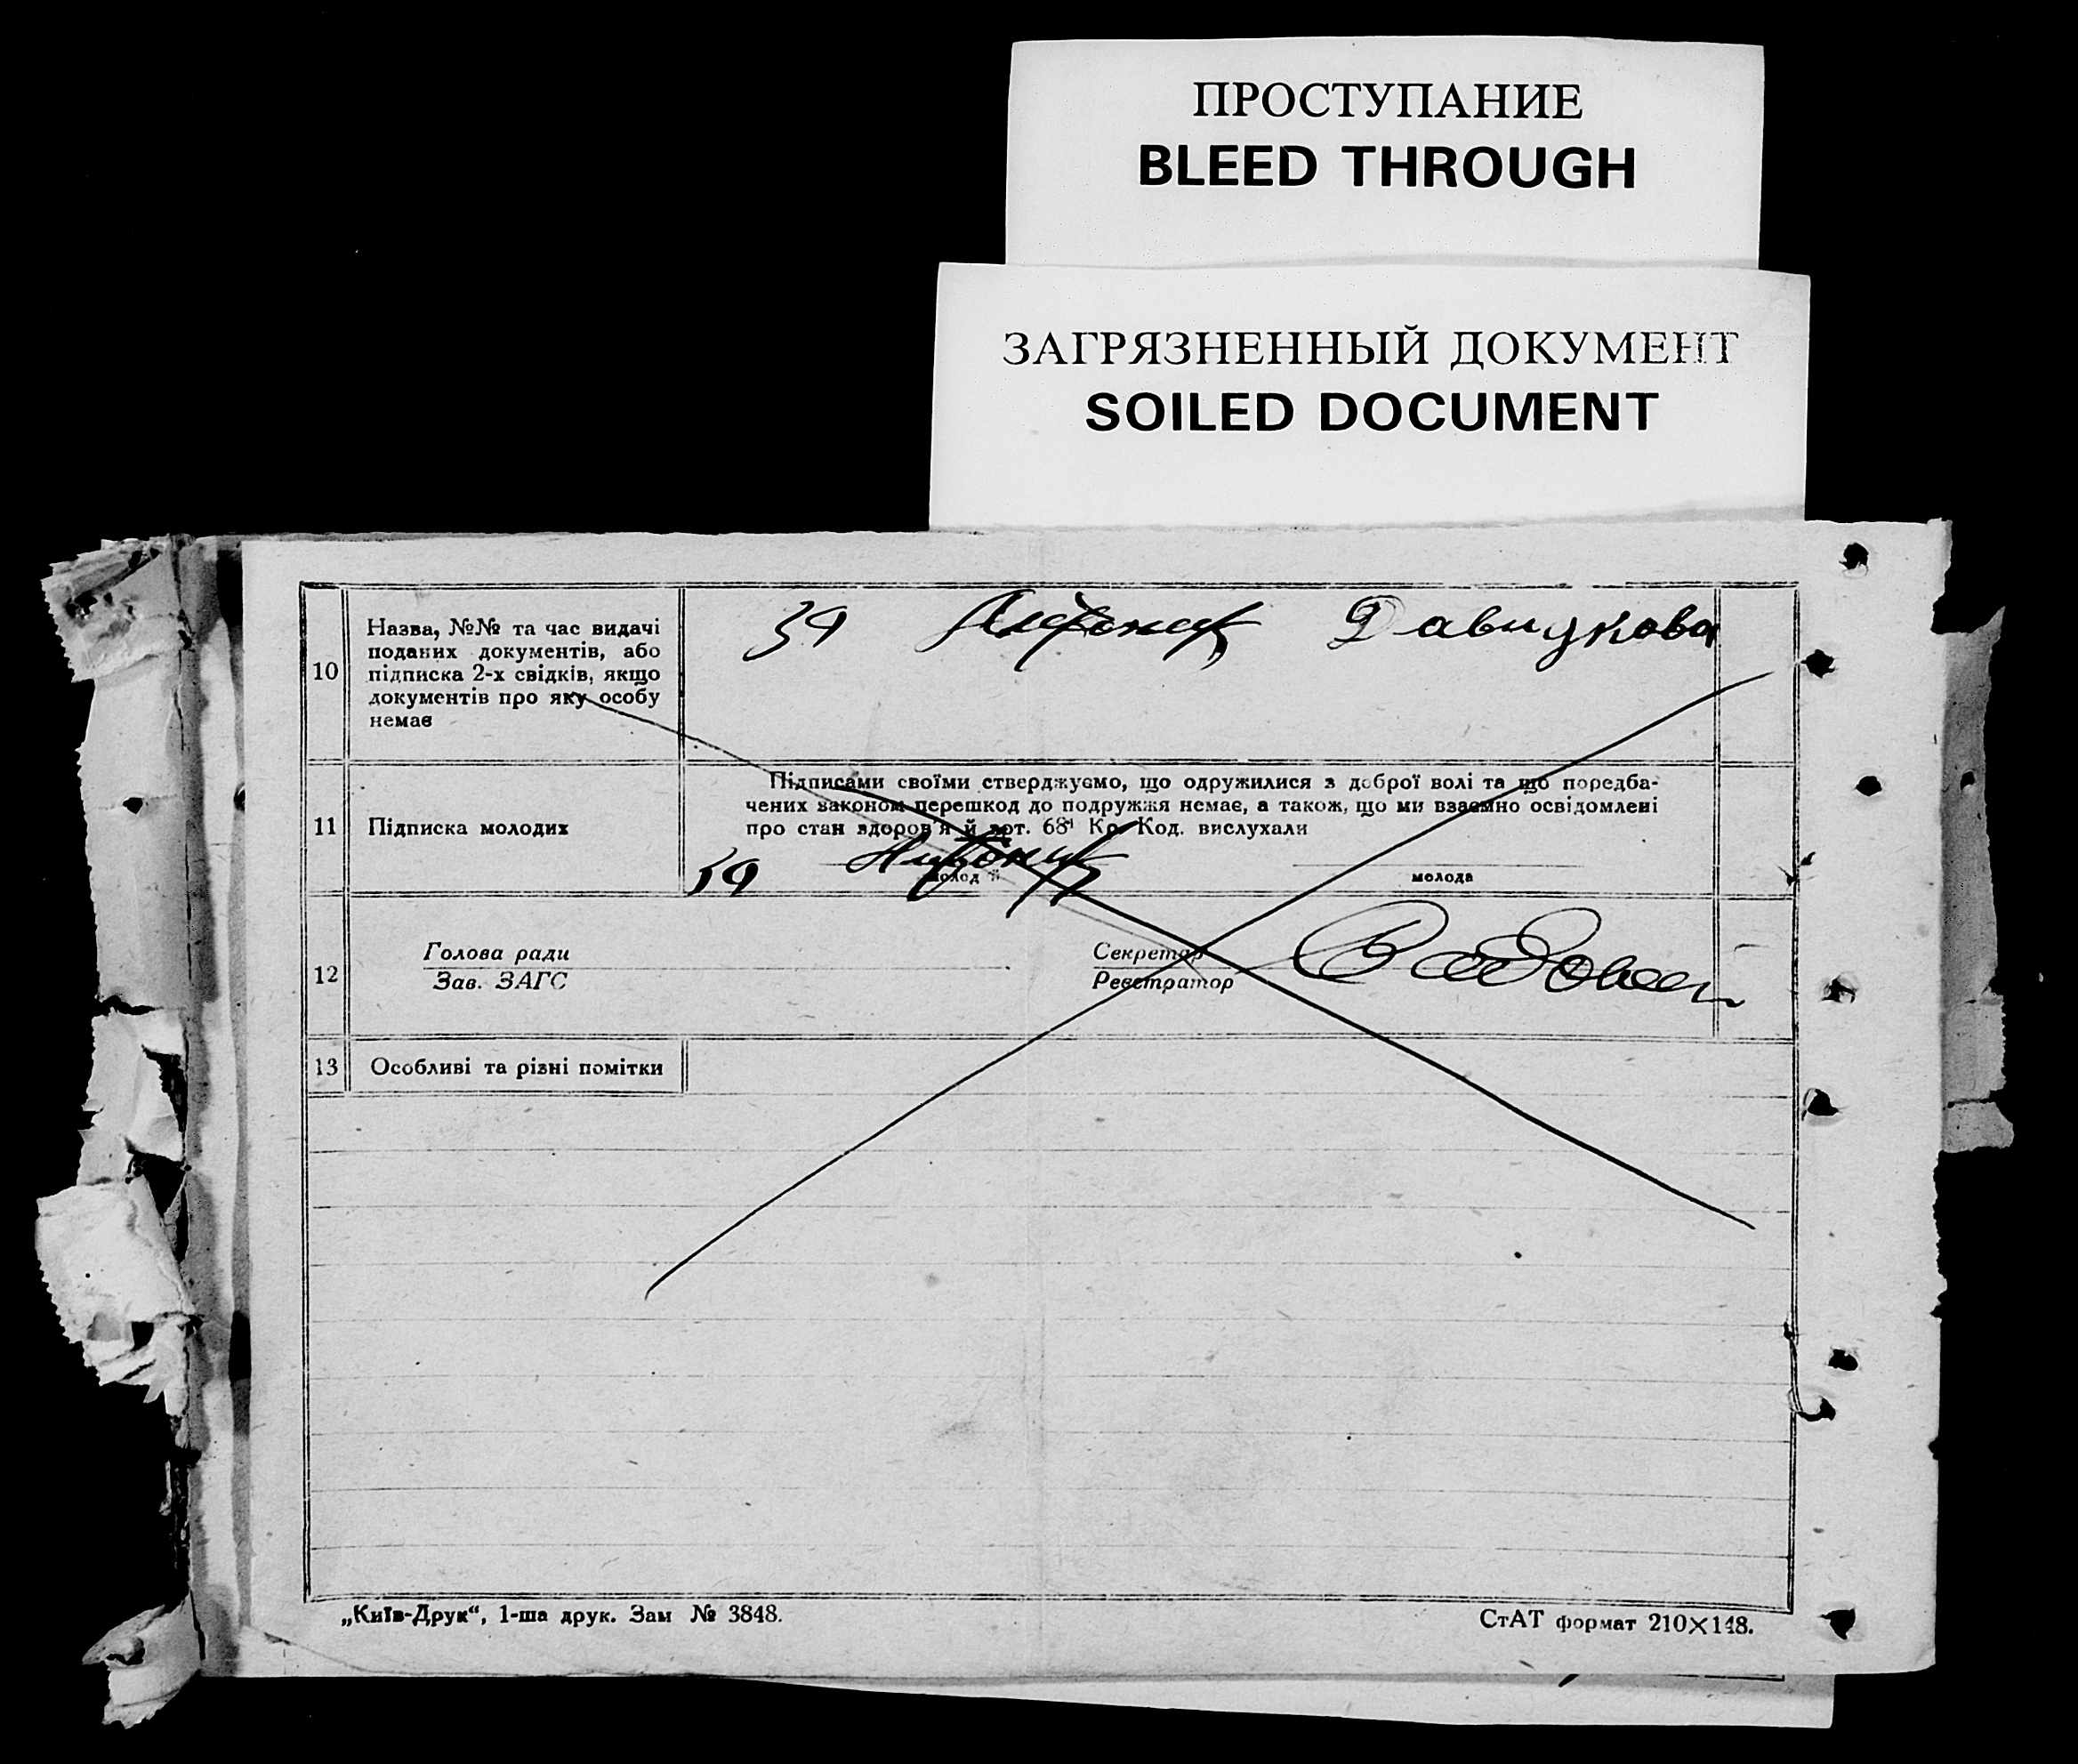 ПРОСТУПАНИЕ
BLEED THROUGH
ЗАГРЯЗНЕННЫЙ ДОКУМЕНТ
SOILED DOCUMENT
10
Назва, №№ та час видачі
поданих документів, або
підписка 2-х свідків, якщо
документів про яку особу
немає
Давидкова
11
Підписка молодих
Підписами своїми стверджуємо, що одружилися з доброї волі та що передба-
чених законом перешкод до подружжя немає, а також, що ми взаємно освідомлені
про стан здоров'я й арт. 68¹ Кр. Код. вислухали
молодий
молода
12
Голова ради
Зав. ЗАГС
Секретар
Реєстратор
13
Особливі та різні помітки
„Київ-Друк“, 1-ша друк. Зам № 3848.
СтАТ формат 210×148.